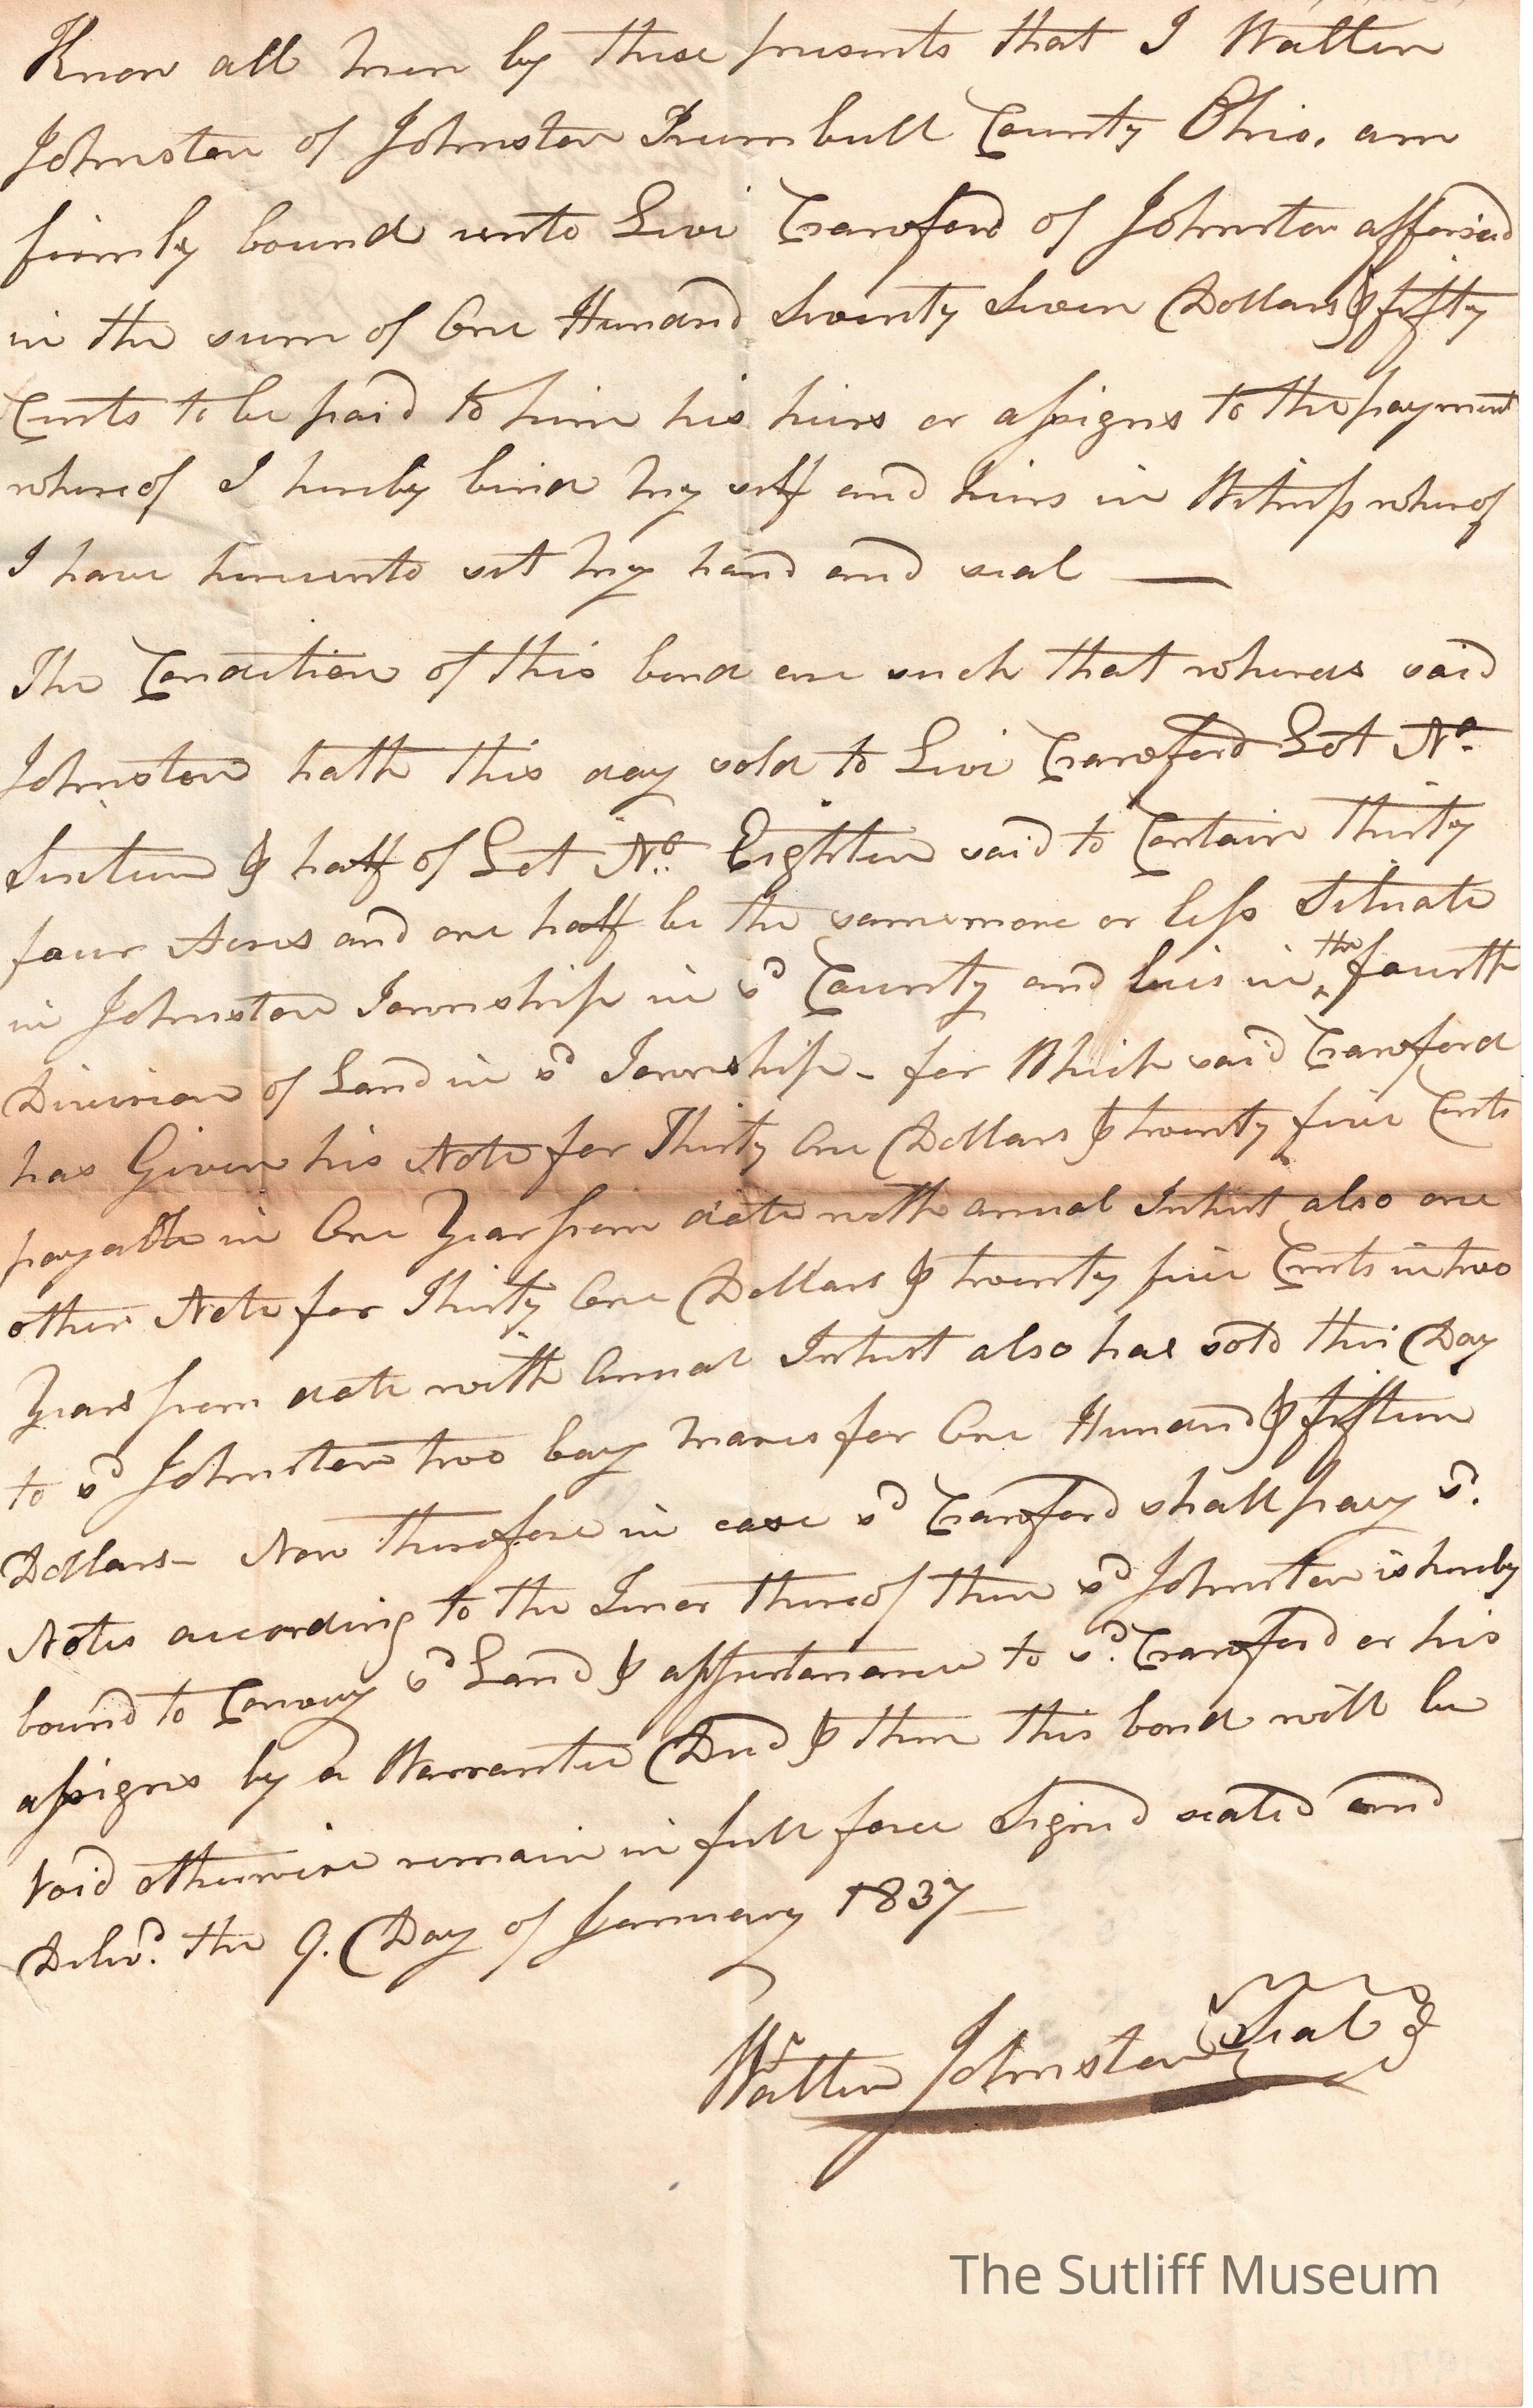 Know all men by these presents that I Walter
Johnston of Johnston Trumbull County Ohio. am
firmly bound unto Levi Crawford of Johnston afforsaid
in the sum of One Hundred Seventy Seven Dollars & fifty
Cents to be paid to him his heirs or assigns to the payment
whereof I hereby bind my self and heirs in Witness whereof
I have hereunto set my hand and seal —
The Condition of this bond are such that whereas said
Johnston hath this day sold to Levi Crawford Lot No.
Sixteen & half of Lot No. Eighteen said to Contain Thirty
four Acres and one half be the same more or less Situate
in Johnston Township in sd County and lieis in the fourth
Division of Land in sd Township - for Which said Crawford
has Given his Note for Thirty One Dollars & twenty five Cents
payable in One Year from date with annual Intrest also one
other Note for Thirty One Dollars & twenty five Cents in two
Years from date with Annual Intrest also has sold this Day
to sd Johnston two bay mares for One Hundred & fifteen
Dollars - Now therefore in case sd Crawford shall pay sd.
Notes according to the Tenor thereof then sd Johnston is hereby
bound to Convey sd Land & appurtenance to sd. Crawford or his
assigns by a Warrantee Deed & then this bond will be
Void otherwise remain in full force Signed sealed and
Delivd. the 9. Day of January 1837 —
Walter Johnston Seal
The Sutliff Museum